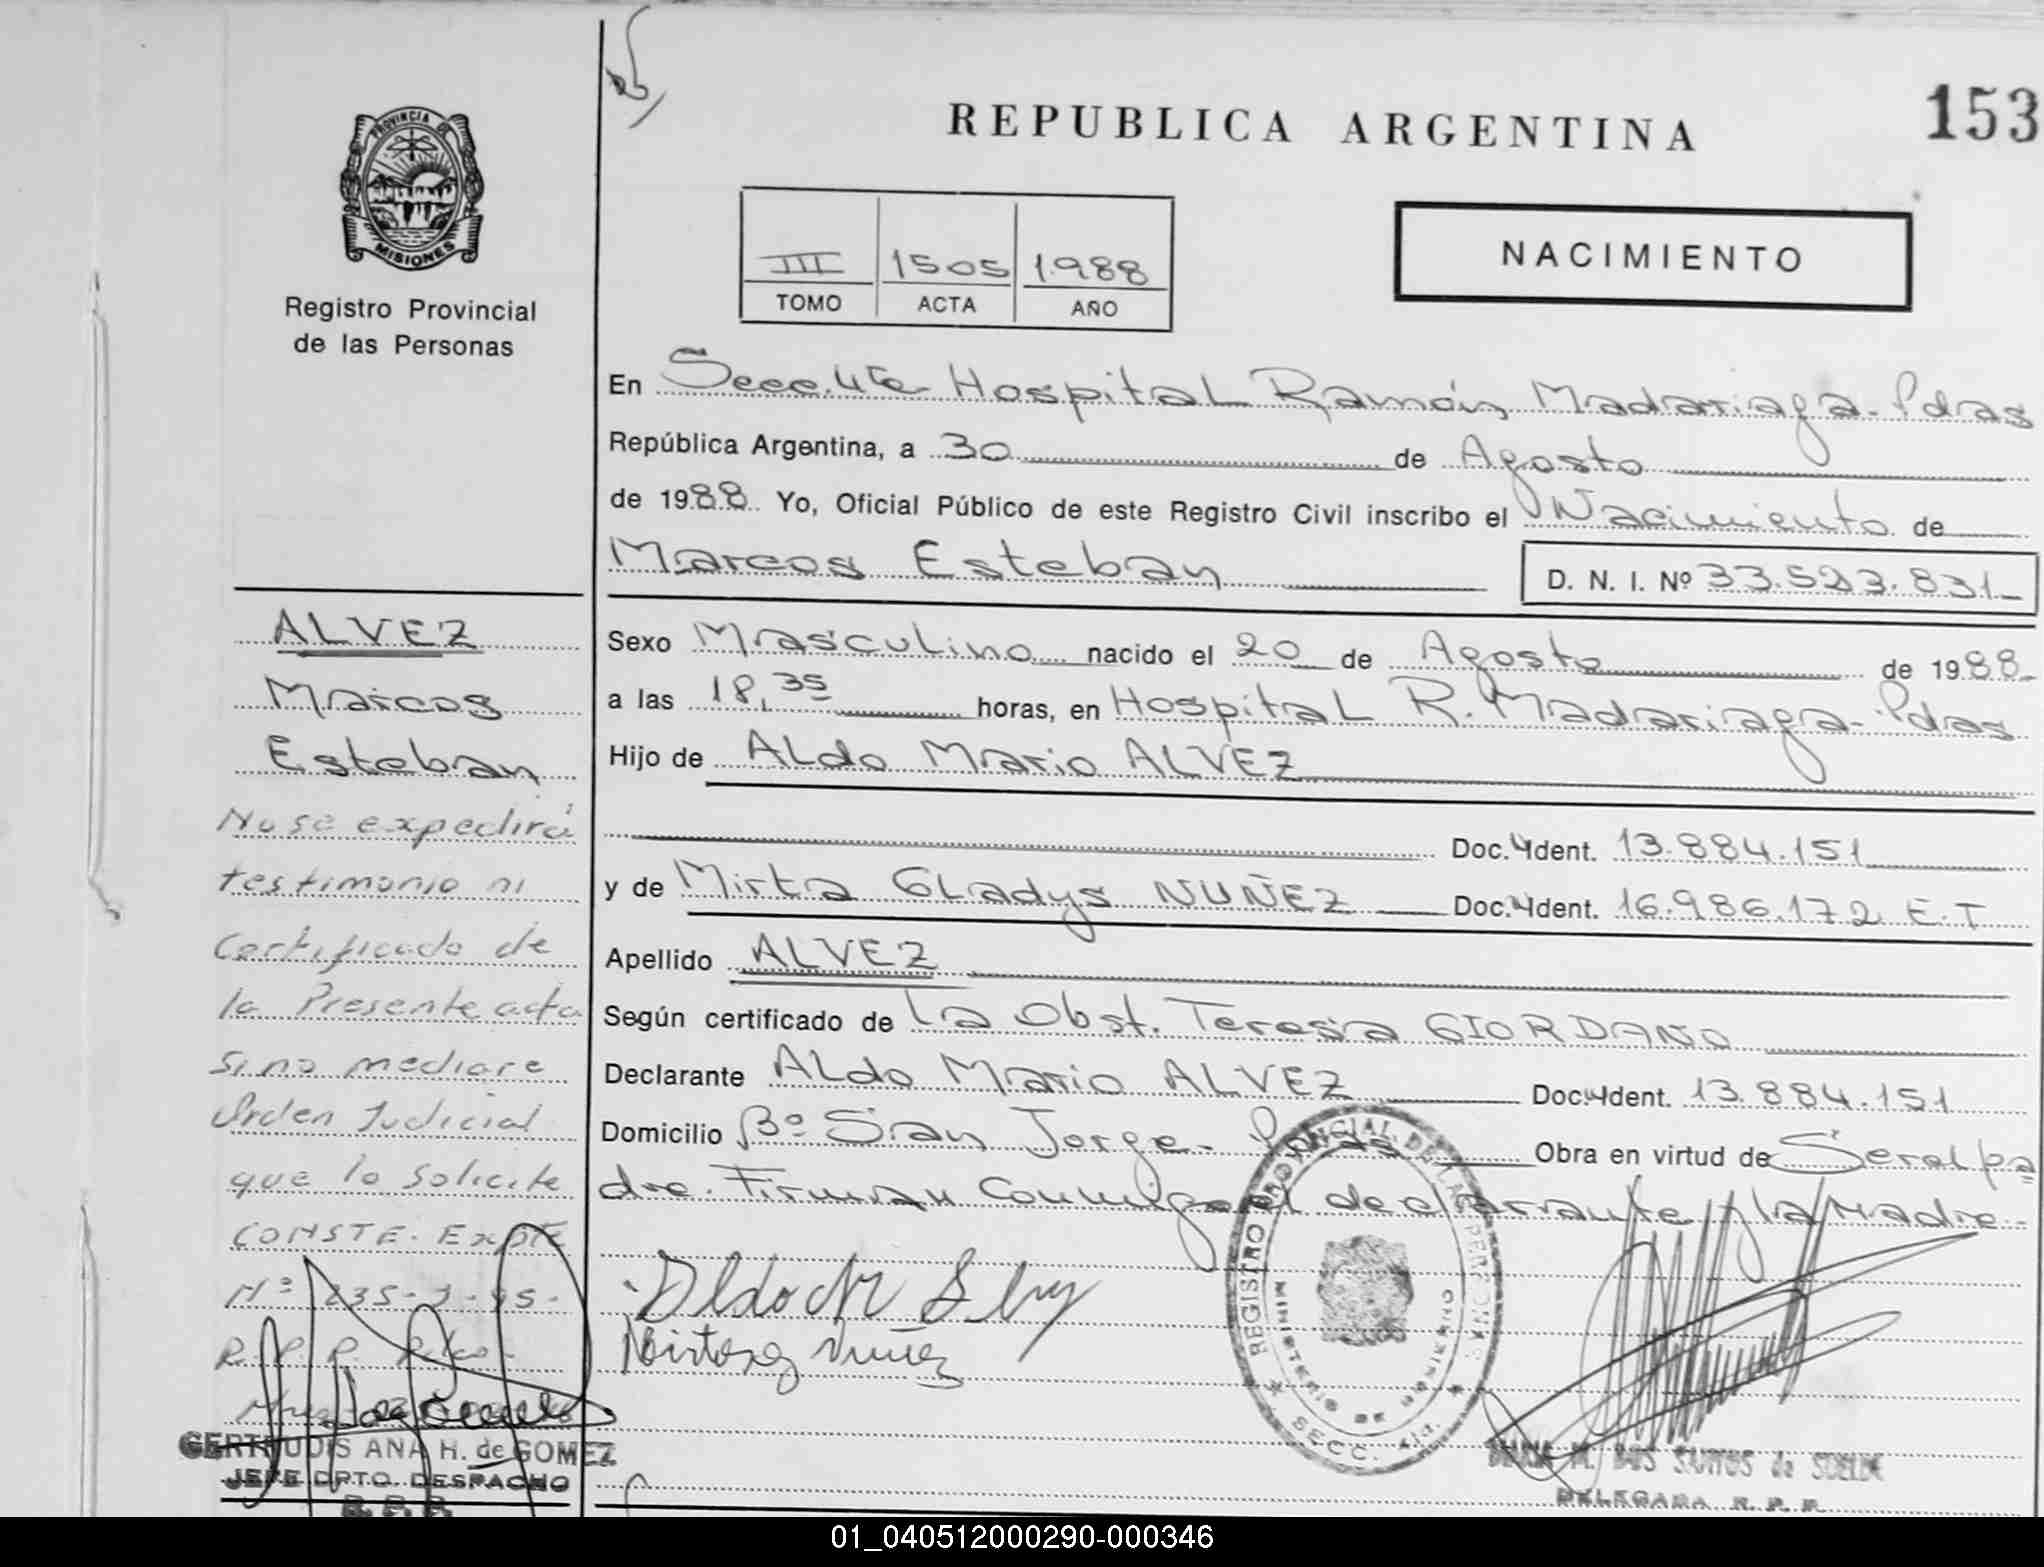 REPUBLICA ARGENTINA
153
PROVINCIA DE
MISIONES
Registro Provincial
de las Personas
III 1505 1988
TOMO ACTA AÑO
NACIMIENTO
En Secc. 4ta Hospital Ramón Madariaga - Pdas
República Argentina, a 30 de Agosto
de 1988. Yo, Oficial Público de este Registro Civil inscribo el Nacimiento de
Marcos Esteban
D. N. I. Nº 33.523.831
Sexo Masculino nacido el 20 de Agosto de 1988
a las 18,35 horas, en Hospital R. Madariaga - Pdas
Hijo de Aldo Mario ALVEZ
Doc. Ident. 13.884.151
y de Mirta Gladys NUÑEZ Doc. Ident. 16.986.172 E.T
Apellido ALVEZ
Según certificado de La Obst. Teresa GIORDANO
Declarante Aldo Mario ALVEZ Doc. Ident. 13.884.151
Domicilio Bº San Jorge - Pdas Obra en virtud de Ser el pa
dre. Firman Conmigo el declarante y la Madre.
ALVEZ
Marcos
Esteban
No se expedirá
testimonio ni
Certificado de
la Presente acta
si no mediare
Orden Judicial
que lo Solicite
CONSTE. EXPTE
Nº 235-
R. P. P.
GERTRUDIS ANA H. de GOMEZ
JEFE DPTO. DESPACHO
R.P.P.
REGISTRO PROVINCIAL DE LAS PERSONAS
MINISTERIO DE GOBIERNO
SECC. 4ta.
M. DOS SANTOS de
DELEGADA R. P. P.
01_040512000290-000346